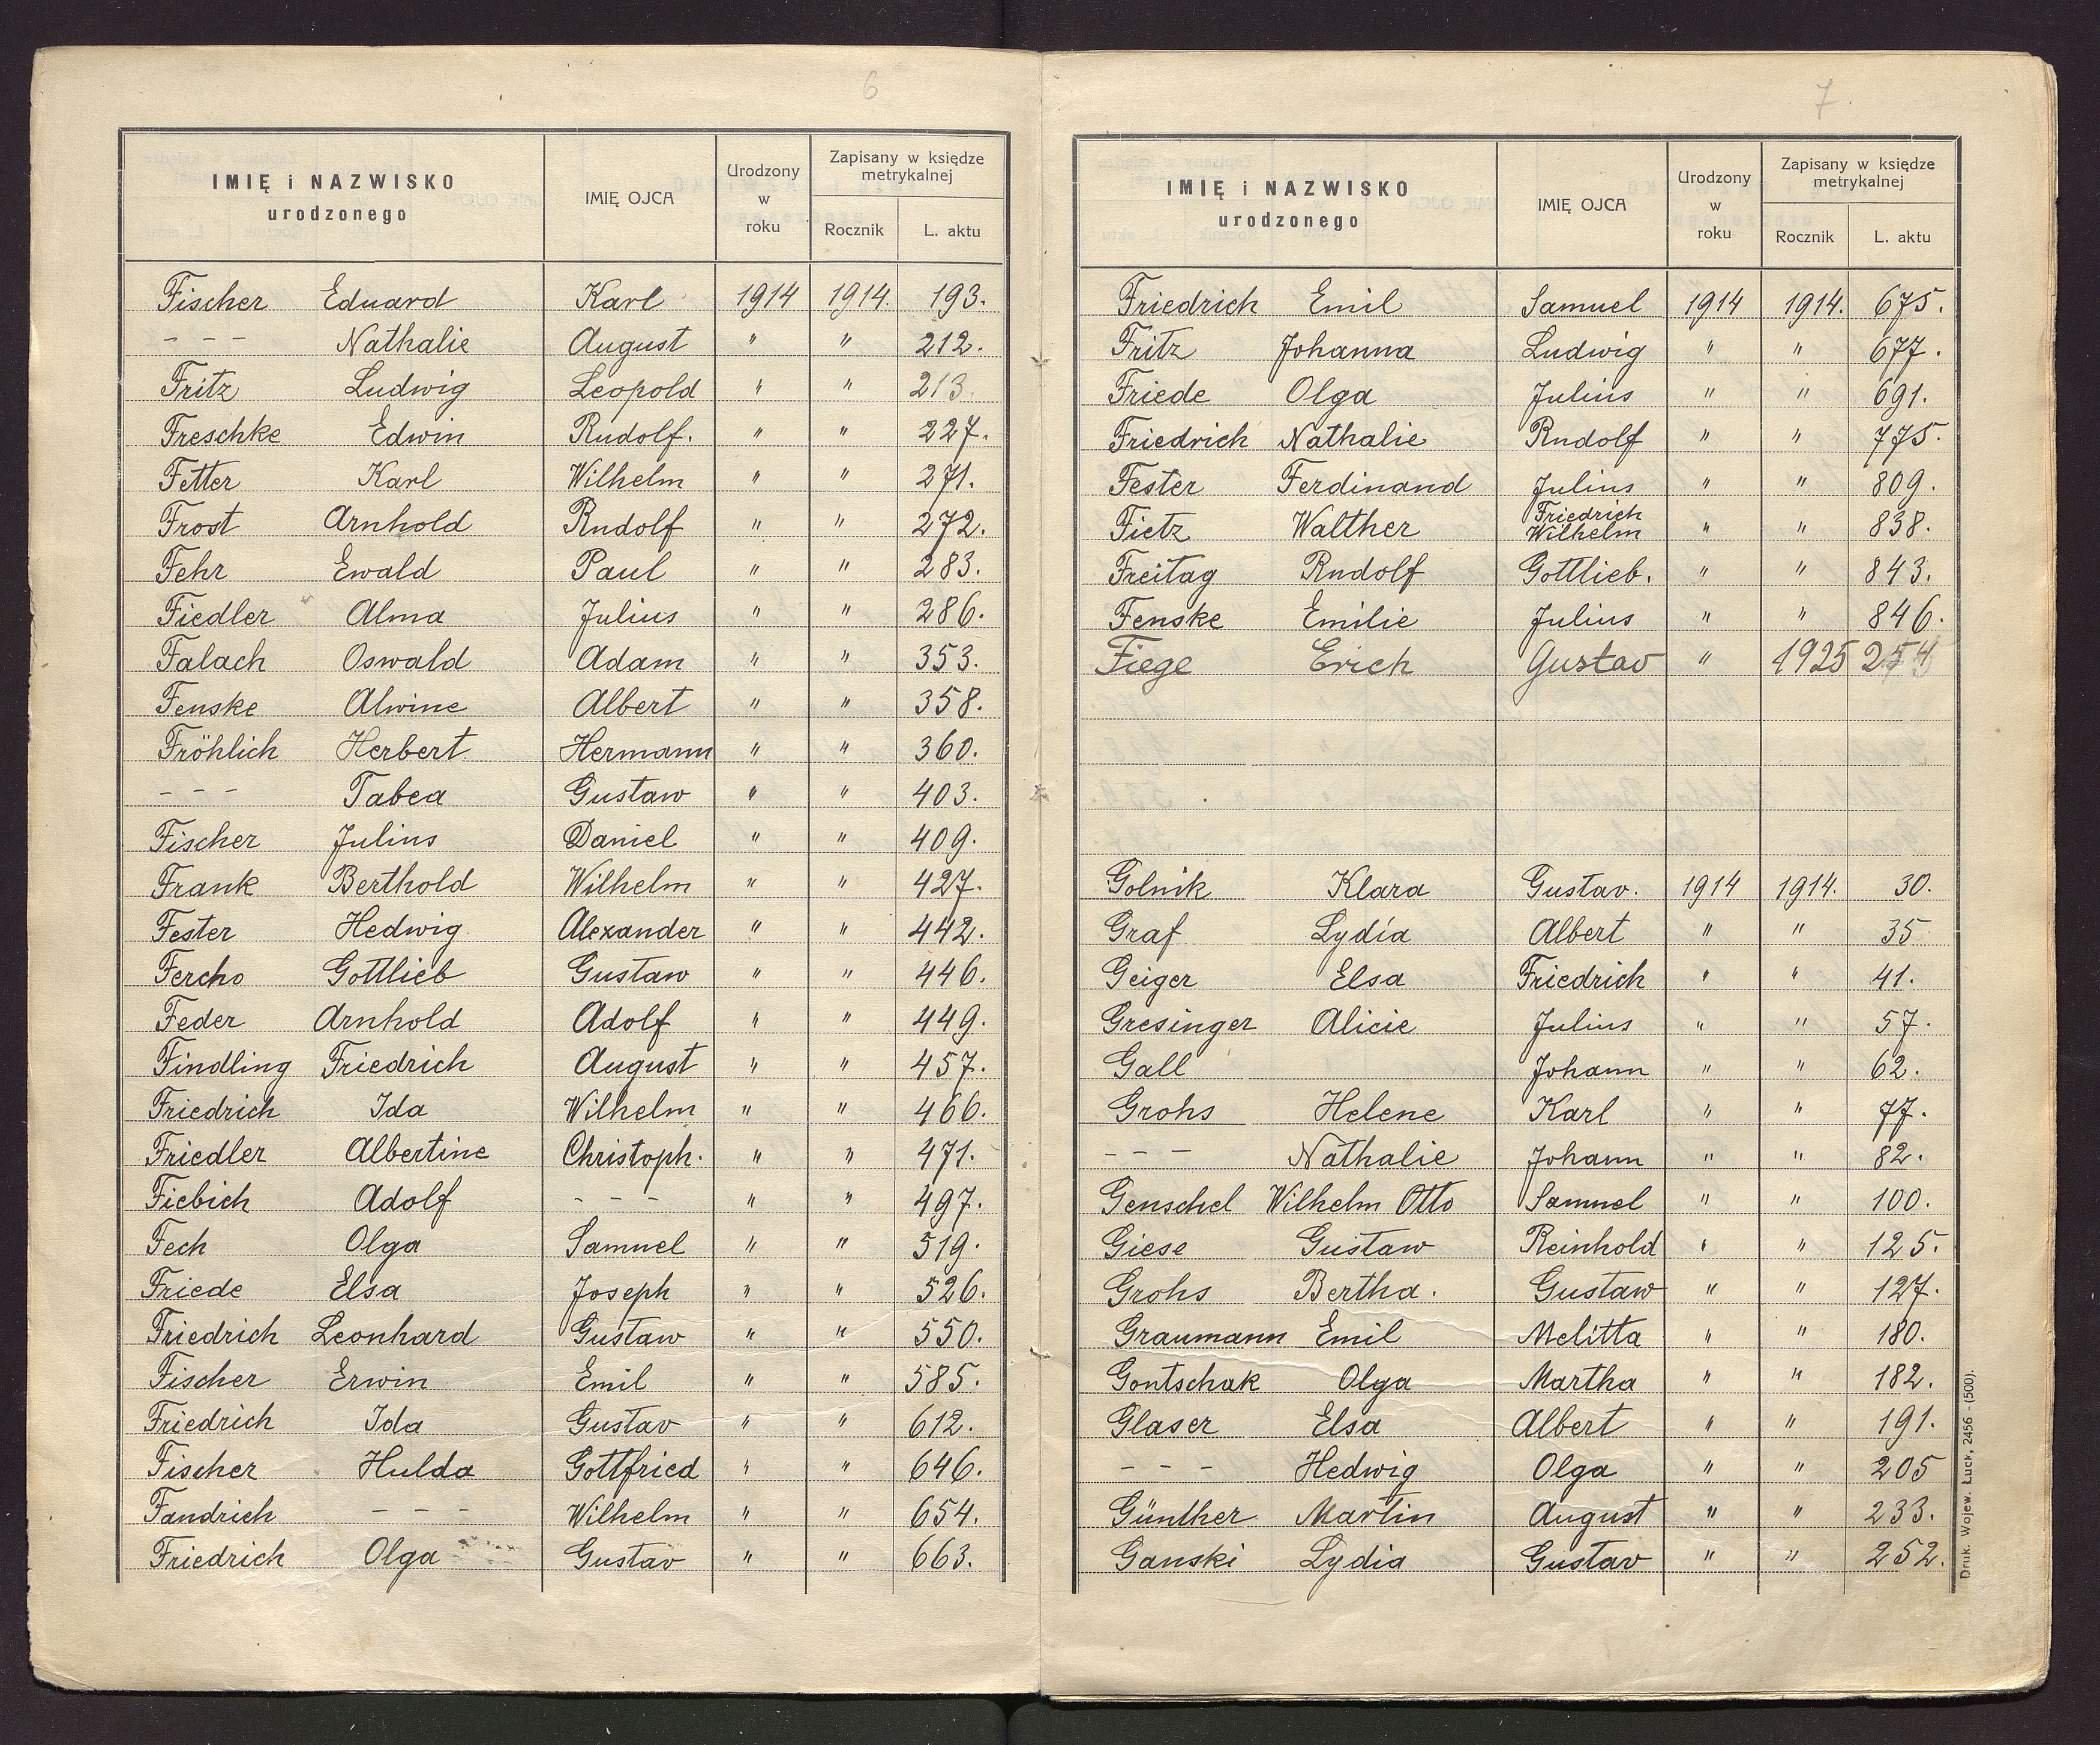 6
IMIĘ i NAZWISKO urodzonego | IMIĘ OJCA | Urodzony w roku | Zapisany w księdze metrykalnej | Rocznik | L. aktu
Fischer Eduard Karl 1914 1914. 193.
- - - Nathalie August " " 212.
Fritz Ludwig Leopold " " 213.
Freschke Edwin Rudolf. " " 227.
Fetter Karl Wilhelm " " 271.
Frost Arnhold Rudolf " " 272.
Fehr Ewald Paul " " 283.
Fiedler Alma Julius " " 286.
Falach Oswald Adam " " 353.
Fenske Alwine Albert " " 358.
Fröhlich Herbert. Hermann " " 360.
- - - Tabea Gustaw " " 403.
Fischer Julius Daniel " " 409.
Frank Berthold Wilhelm " " 427.
Fester Hedwig Alexander " " 442.
Fercho Gottlieb Gustaw " " 446.
Feder Arnhold Adolf " " 449.
Findling Friedrich August " " 457.
Friedrich Ida Wilhelm " " 466.
Friedler Albertine Christoph. " " 471.
Fiebich Adolf - - - " " 497.
Fech Olga Samuel " " 519.
Friede Elsa Joseph " " 526.
Friedrich Leonhard Gustaw " " 550.
Fischer Erwin Emil " " 585.
Friedrich Ida Gustav " " 612.
Fischer Hulda Gottfried " " 646.
Fandrich - - - Wilhelm " " 654.
Friedrich Olga Gustav " " 663.
7
IMIĘ i NAZWISKO urodzonego | IMIĘ OJCA | Urodzony w roku | Zapisany w księdze metrykalnej | Rocznik | L. aktu
Friedrich Emil Samuel 1914 1914. 675.
Fritz Johanna Ludwig " " 677.
Friede Olga Julius " " 691.
Friedrich Nathalie Rudolf " " 775.
Fester Ferdinand Julius " " 809.
Fietz Walther Friedrich Wilhelm " " 838.
Freitag Rudolf Gottlieb. " " 843.
Fenske Emilie Julius " " 846.
Fiege Erich Gustav " 1925 254
Golnik Klara Gustav. 1914 1914. 30.
Graf Lydia Albert " " 35
Geiger Elsa Friedrich " " 41.
Gresinger Alicie Julius " " 57.
Gall Johann " " 62.
Grohs Helene Karl " " 77.
- - - Nathalie Johann " " 82.
Genschel Wilhelm Otto Samuel " " 100.
Giese Gustaw Reinhold " " 125.
Grohs Bertha. Gustaw " " 127.
Graumann Emil Melitta " " 180.
Gontschak Olga Martha " " 182.
Glaser Elsa Albert " " 191.
- - - Hedwig Olga " " 205
Günther Martin August " " 233.
Ganski Lydia Gustav " " 252.
Druk. Wojew. Łuck, 2456 - (500).